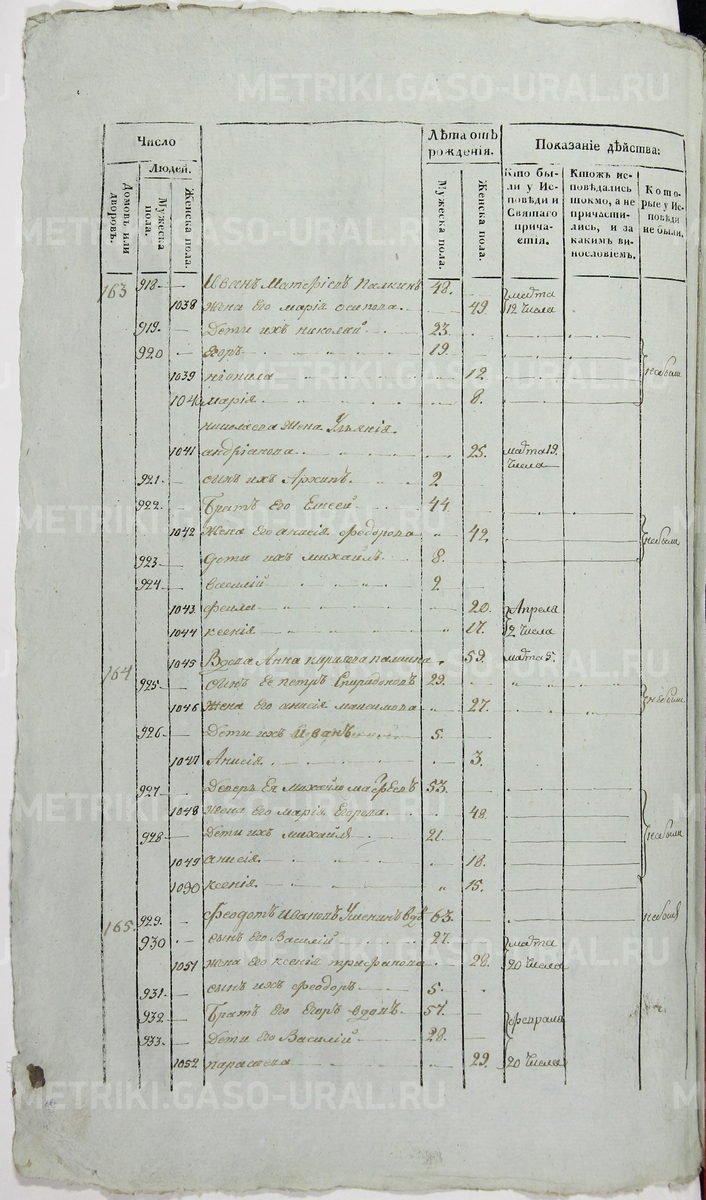 METRIKI.GASO-URAL.RU
Число
Людей.
Домовъ или дворовъ.
Мужеска пола.
Женска пола.
Лѣта отъ рожденія.
Мужеска пола.
Женска пола.
Показаніе дѣйства:
Кто бы-
ли у Ис-
повѣди и
Святаго
прича-
стія.
Ктожъ ис-
повѣдались
токмо, а не
причасти-
лись, и за
какимъ ви-
нословіемъ.
Кото-
рые у Ис-
повѣди
не были.
163 918 Иванъ Матфѣевъ Палкинъ 48.
1038 жена его марія осипова 49. марта 12 числа
919. дети ихъ николай 23
920 Егоръ 19.
1039 неонила 12 небыли
1040 марія 8.
николаева жена Ульянія
1041 андріянова 25. марта 19. числа
921. сынъ ихъ Архипъ 2
922. Братъ его Елисей 44
1042 жена его анисія федорова 42. небыли
923 дети ихъ михаилъ 8.
924 василій 2
1043 фекла 20. Апреля
1044 ксенія 17. 2 числа
164 1045 Вдова Анна кирилова палкина 59. марта 5.
925 сынъ ее петръ Спиридоновъ 29.
1046 жена его анисія максимова 27. небыли
926 дети ихъ Иванъ 5.
1047 Анисія 3.
927 деверь ея михайло матфеевъ 53.
1048 жена его марія Егорова 48.
928 дети ихъ михайла 21. небыли
1049 анисія 18.
1050 ксенія 15.
165 929 феодотъ Ивановъ вдовъ 63. небылъ
930 сынъ его Василий 27. марта
1051 жена его ксенія трифанова 28. 20 числа
931 сынъ ихъ феодоръ 5.
932 Братъ его Егоръ вдовъ 57. февраля
933 дети его Василий 28.
1052 парасковa 29. 20 числа